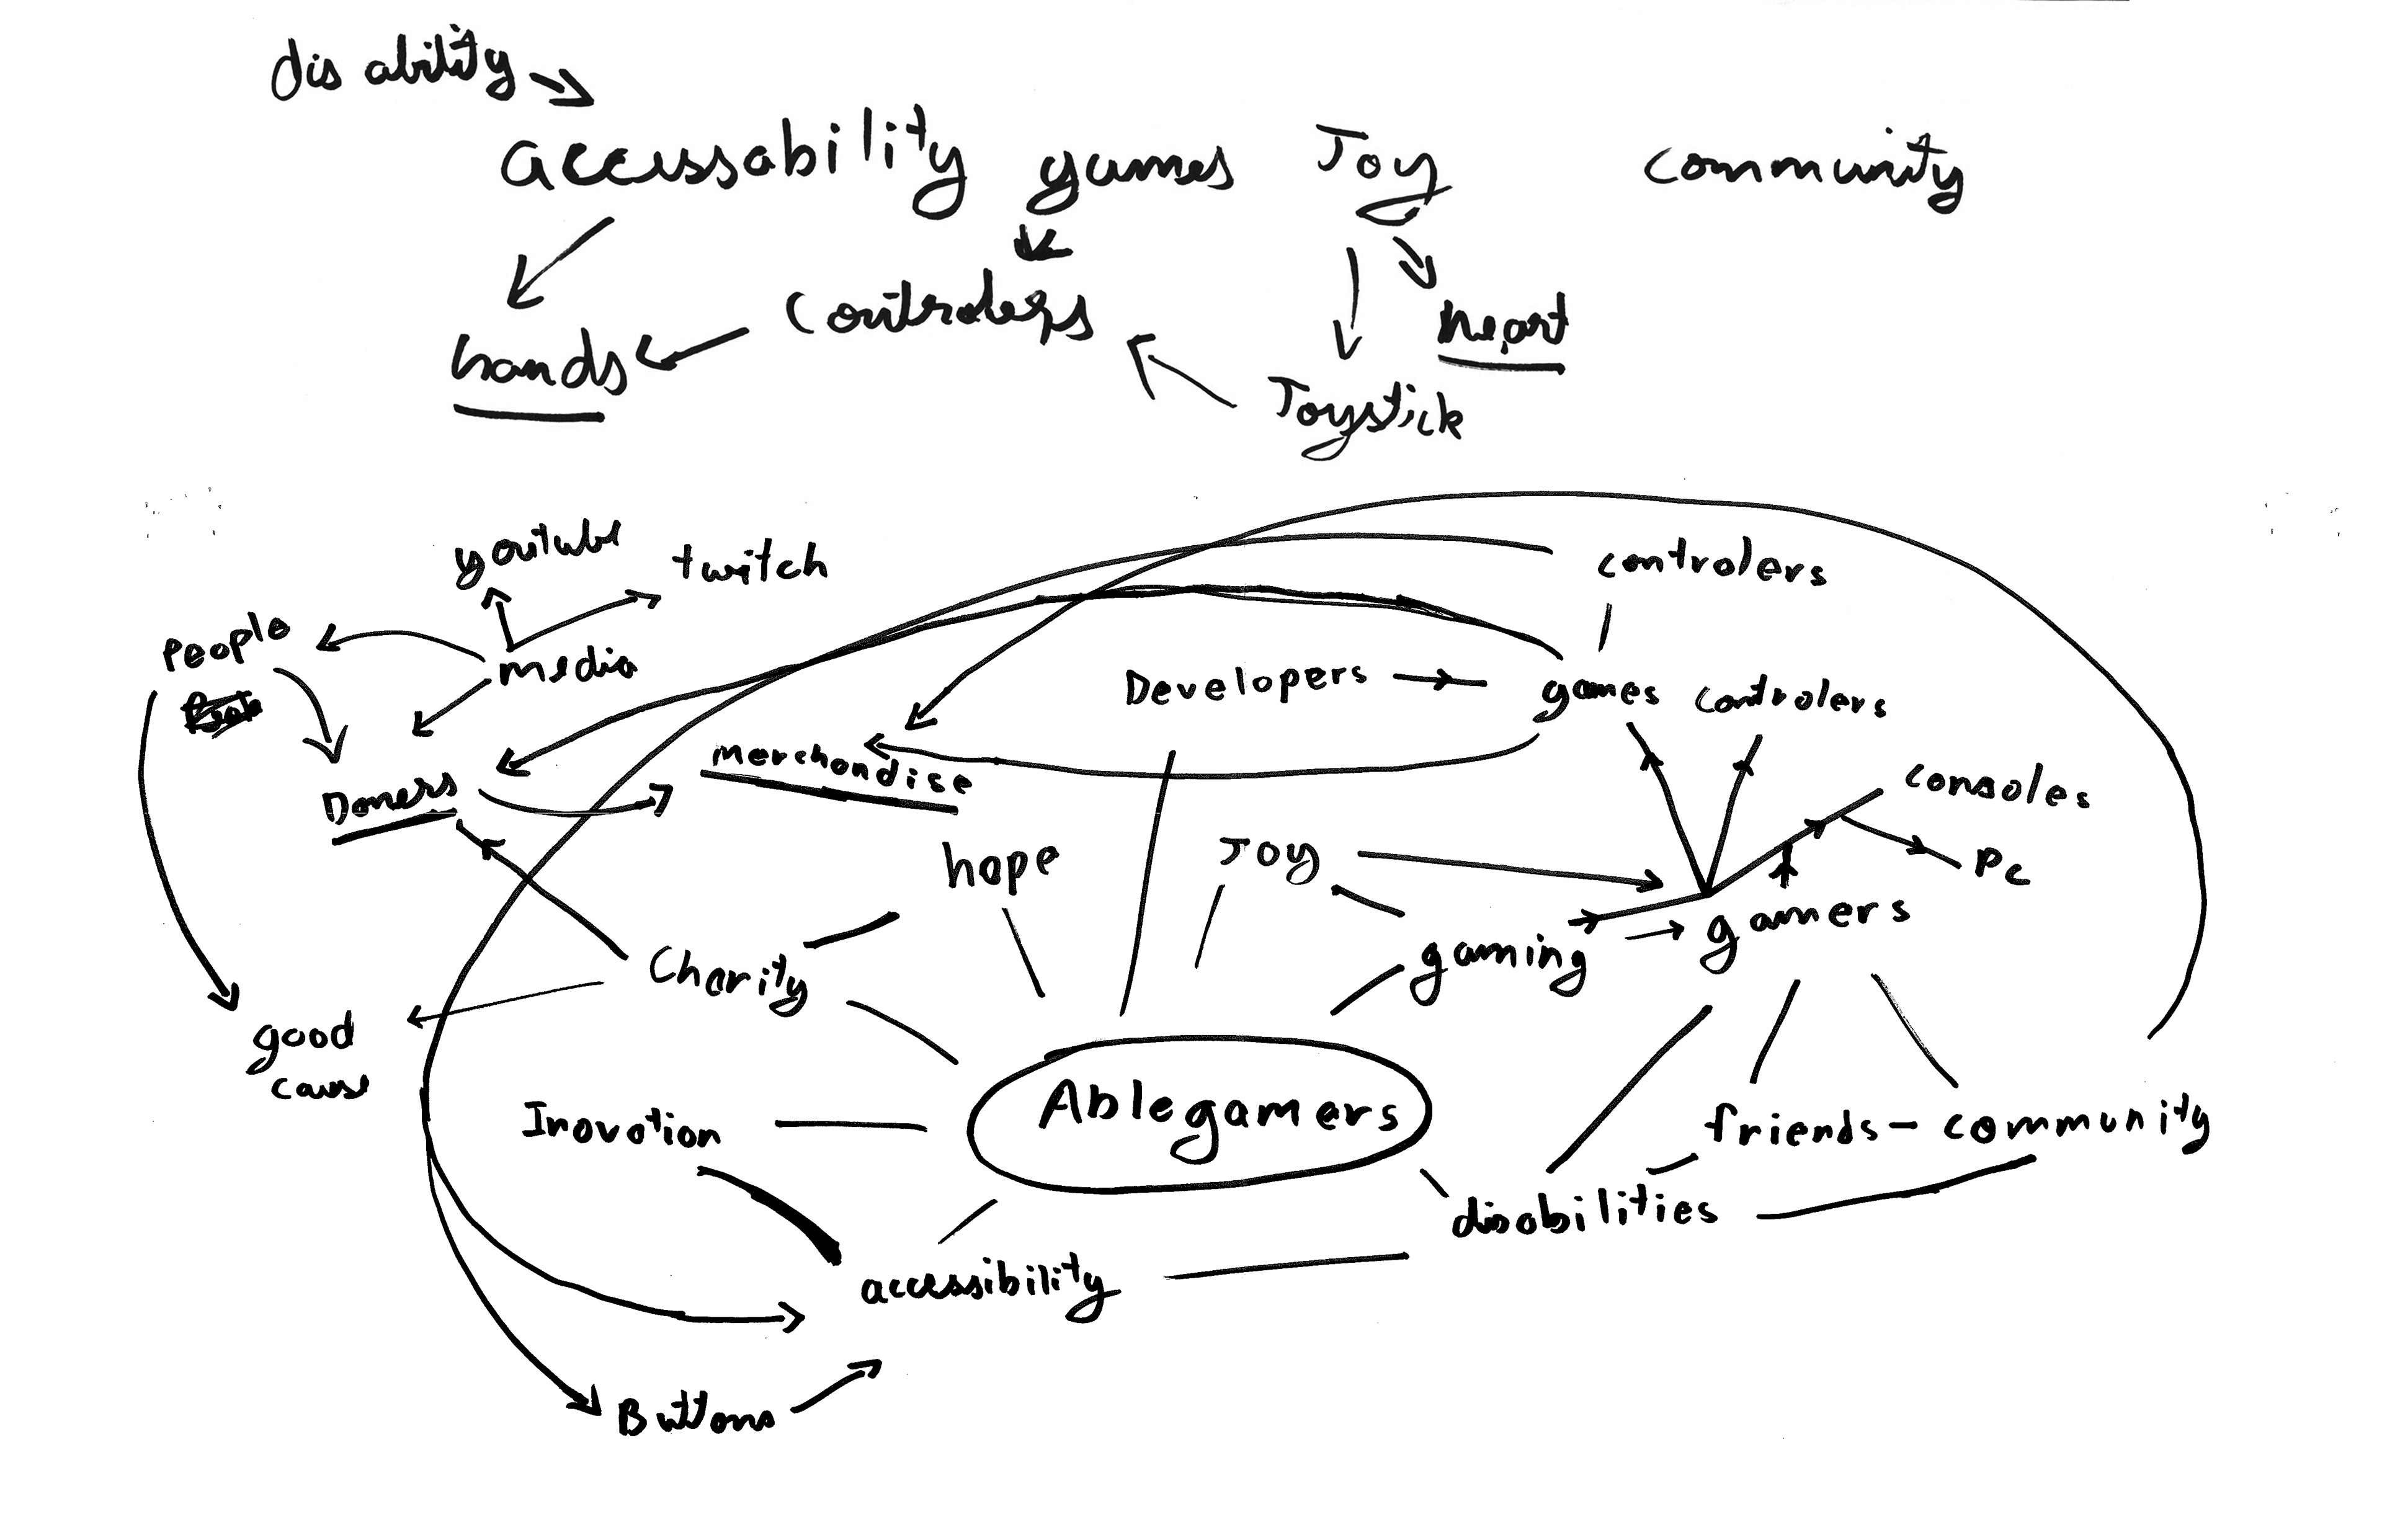 disability
accessability games Joy community
controlers heart
hands Joystick
youtube twitch controlers
people media Developers games controlers
Doners merchandise consoles
hope Joy pc
Charity gaming gamers
good
cause
Ablegamers
Inovation friends - community
disabilities
accessibility
Buttons